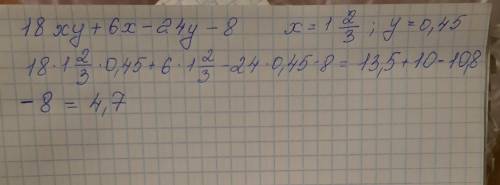 18xy+6x-24y-8 x=1 2/3; y=0,45
18·1 2/3·0,45+6·1 2/3-24·0,45-8=13,5+10-10,8
-8=4,7